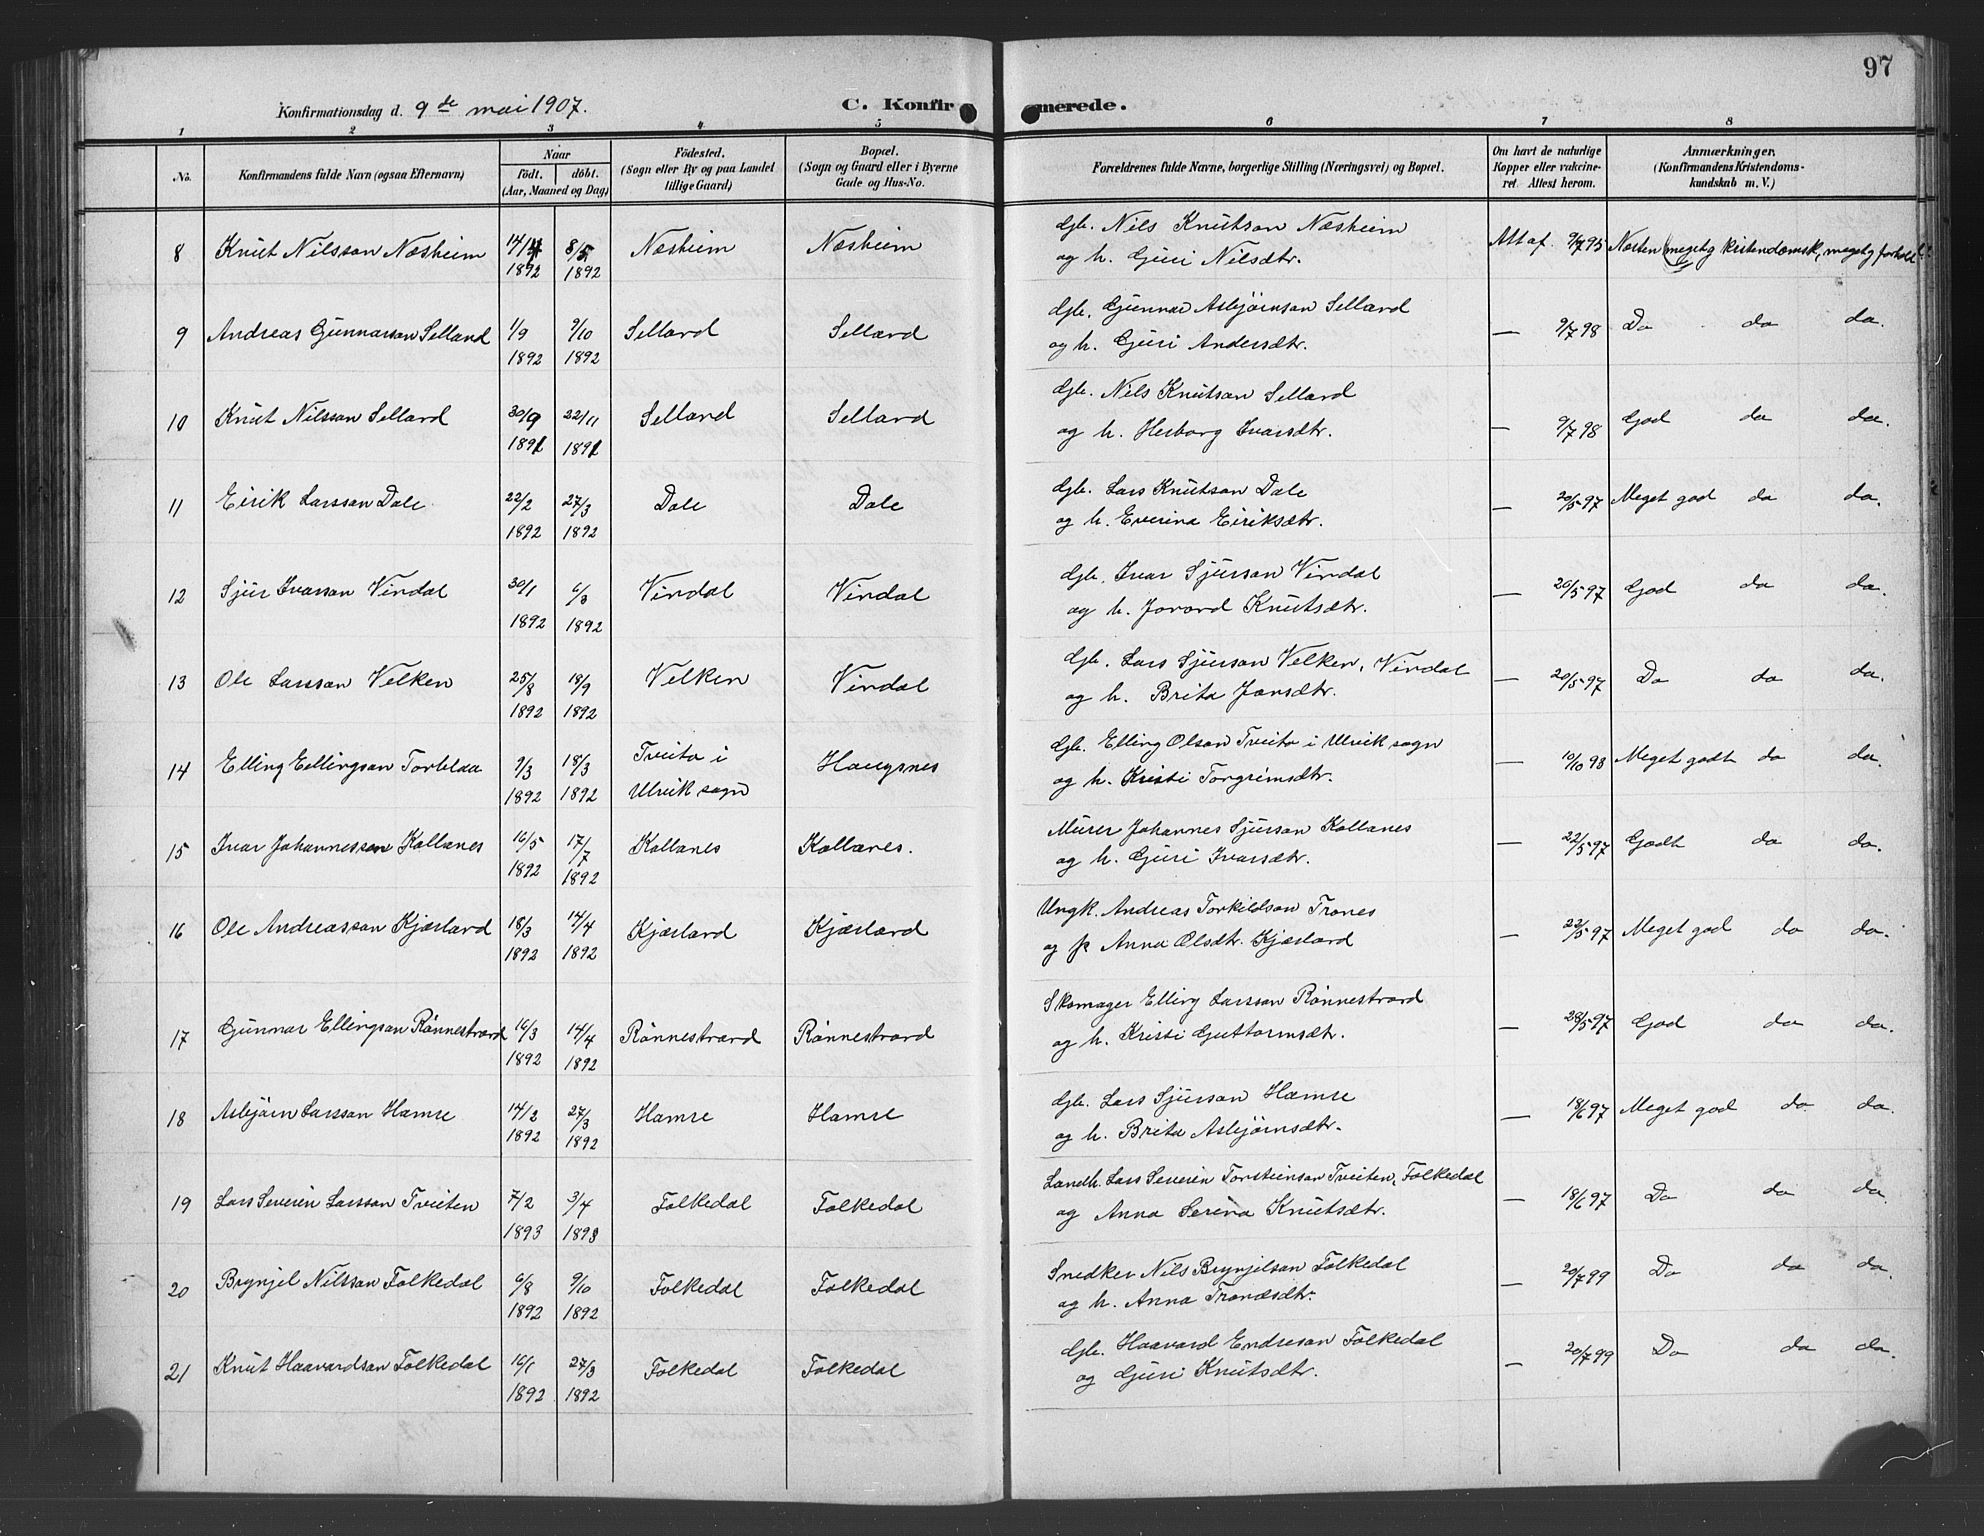 97
Konfirmationsdag d. 9de mai 1907.
C. Konfirmerede.
1 2 3 4 5 6 7 8
No.
Konfirmandens fulde Navn (ogsaa Efternavn)
Naar
födt. döbt.
(Aar, Maaned og Dag)
Födested.
(Sogn eller By og paa Landet
tillige Gaard)
Bopæl.
(Sogn og Gaard eller i Byerne
Gade og Hus-No.
Forældrenes fulde Navne, borgerlige Stilling (Næringsvei) og Bopæl.
Om havt de naturlige
Kopper eller vakcine-
ret Attest herom.
Anmærkninger.
(Konfirmandens Kristendoms-
kundskab m. V.)
8 Knut Nilsson Næsheim 14/4 1892 8/5 1892 Næsheim Næsheim Gbr. Nils Knutson Næsheim
og h. Guri Nilsdtr. Att af 9/7 95 Næsten megetg kristendomsk, megetg forhold
9 Andreas Gunnarson Selland 1/9 1892 9/10 1892 Selland Selland Gbr. Gunnar Asbjørnson Selland
og h. Guri Andersdtr. — 9/7 98 Do do do.
10 Knut Nilsson Selland 30/9 1891 22/11 1891 Selland Selland Gbr. Nils Knutson Selland
og h. Herborg Ivarsdtr. — 9/7 98 God do do.
11 Eirik Larsson Dale 22/2 1892 27/3 1892 Dale Dale Gbr. Lars Knutson Dale
og h. Everina Eiriksdtr. — 20/5 97 Meget god do do.
12 Sjur Ivarson Vindal 30/1 1892 6/3 1892 Vindal Vindal Gbr. Ivar Sjurson Vindal
og h. Jorand Knutsdtr. — 20/5 97 God do do.
13 Ole Larsson Velken 25/8 1892 18/9 1892 Velken Vindal Gbr. Lars Sjurson Velken, Vindal
og h. Brita Jonsdtr. — 20/5 97 Do do do.
14 Elling Ellingson Torblaa 9/3 1892 18/3 1892 Tveito i
Ulvik sogn Haugsnes Gbr. Elling Olson Tveito i Ulvik sogn
og h. Kristi Torgrimsdtr. — 10/10 93 Meget godt do do.
15 Ivar Johannesson Kollanes 16/5 1892 17/7 1892 Kollanes Kollanes. Murer Johannes Sjurson Kollanes
og h. Guri Ivarsdtr. — 22/5 97 Godt do do.
16 Ole Andreasson Kjærland 18/3 1892 14/4 1892 Kjærland Kjærland Ungk. Andreas Torkildson Trones
og p Anna Olsdtr. Kjærland — 22/5 97 Meget god do do.
17 Gunnar Ellingson Rønnestrand 16/3 1892 14/4 1892 Rønnestrand Rønnestrand Skomager Elling Larsson Rønnestrand
og h. Kristi Guttormsdtr. — 28/5 97 God do do.
18 Asbjørn Larsson Hamre 14/2 1892 27/3 1892 Hamre Hamre Gbr. Lars Sjurson Hamre
og h. Brita Asbjørnsdtr. — 18/6 97 Meget god do do.
19 Lars Severin Larsson Tveiten 7/2 1893 3/4 1893 Folkedal Folkedal Landh. Lars Severin Torsteinson Tveiten, Folkedal
og Anna Serina Knutsdtr. — 18/6 97 Do do do.
20 Brynjel Nilsson Folkedal 6/8 1892 9/10 1892 Folkedal Folkedal Snedker Nils Brynjelson Folkedal
og h. Anna Trondsdtr. — 20/7 99 Do do do.
21 Knut Haavardson Folkedal 16/1 1892 27/3 1892 Folkedal Folkedal Gbr. Haavard Endreson Folkedal
og Guri Knutsdtr. — 20/7 99 Do do do.